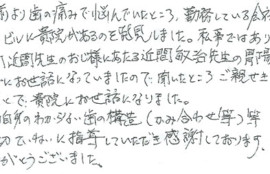 前より歯の痛みで悩んでいたところ、勤務している会
ビルに貴院があるのを発見しました。私事ではあり
近間先生のおじ様にあたる近間敏治先生の胃腸
にお世話になっていましたので、聞いたところご親せき
とで、貴院にお世話になりました。
自分のわからない歯の構造(かみ合わせ等)等
ていねいに指導していただき感謝しております。
がとうございました。